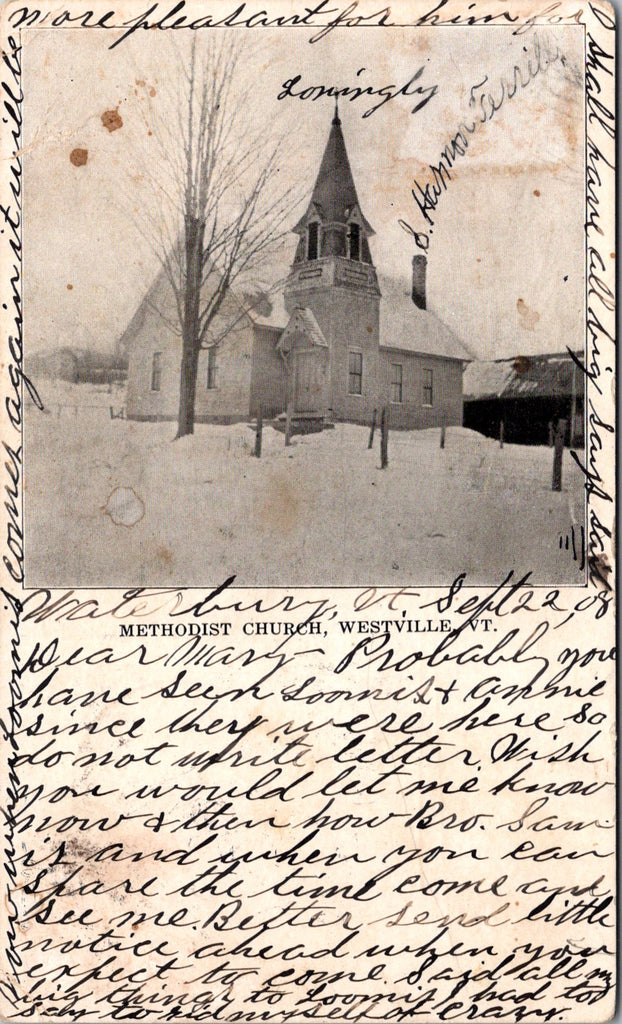 Waterbury, Vt. Sept 22, 08
METHODIST CHURCH, WESTVILLE, VT.
Dear Mary - Probably you
have seen Loomis & Annie
since they were here so
do not write letter. Wish
you would let me know
now & then how Bro. Sam
is and when you can
spare the time come and
see me. Better send little
notice ahead when you
expect to come. Said all my
big things to Loomis, had too
say to rid myself of crazy.
Now when Loomis comes again it will be
more pleasant for him for I
shall have all big says said
Lovingly
S. Harmon Terrill